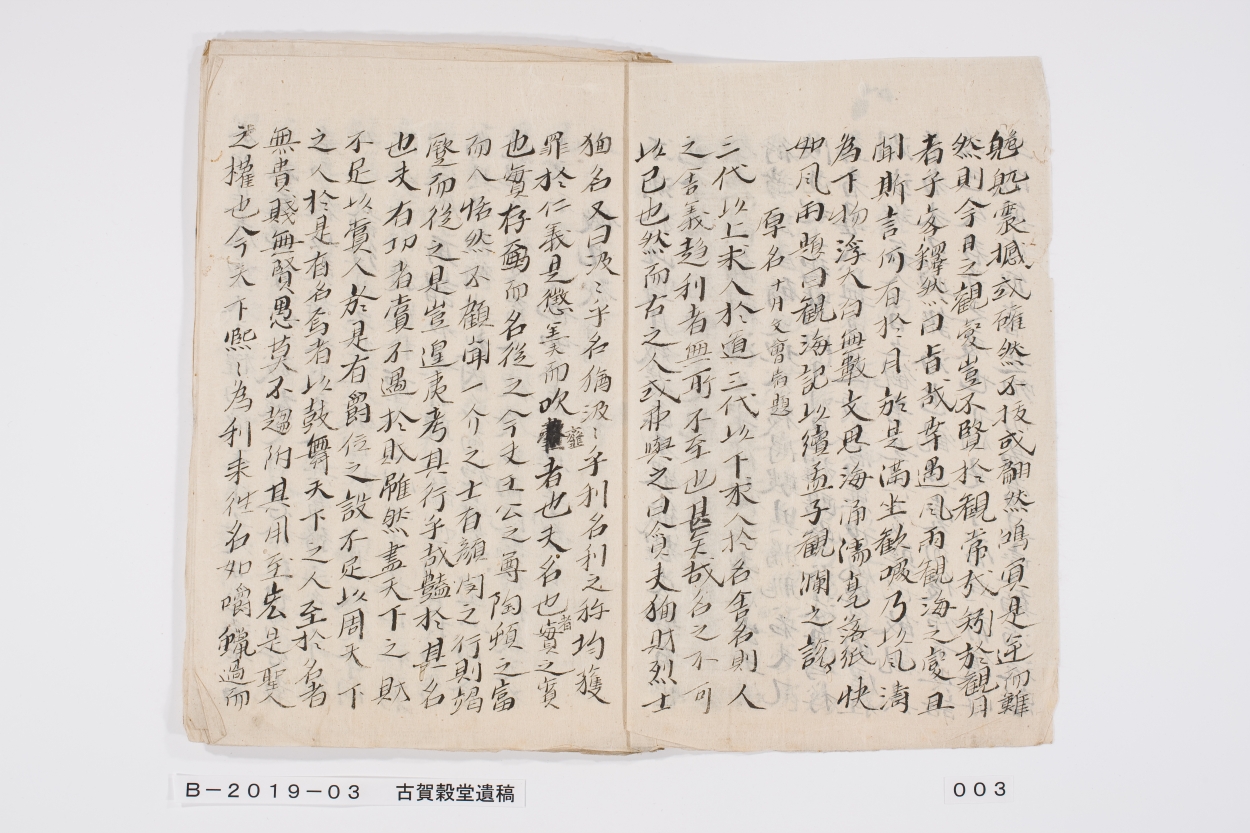 然則今日之観変豈不賢於観常哉矧於観月
者子客釋然曰旨哉幸遇風雨観海之変且
聞斯言何有於月於是満坐歓呶乃以風濤
為下物浮大白無数文思海涌濡毫落紙快
如風雨題曰観海記以續孟子観瀾之說
原名十月文會當題
三代以上求人於道三代以下求人於名舎名則人
之舎義趋利者無所不至也甚矣哉名之不可
以已也然而古之人或弗與之曰貪夫狥財烈士
狥名又曰汲〻乎名猶汲〻乎利名利之称均獲
罪於仁義是懲羹而吹虀者也夫名也者實之賓
也實存焉而名從之今夫王公之尊陶頓之富
而人恬然不顧聞一介之士有顔閔之行則竭
蹷而從之是豈遑夷考其行乎哉艶於其名
也夫有功者賞不過於財雖然盡天下之財
不足以賞人於是有爵位之設不足以周天下
之人於是有名焉者以鼓舞天下之人至於名者
無貴賤無賢愚莫不趨附其用至宏是聖人
之權也今天下熙〻為利来往名如嚼蠟過而
B－2019－03　古賀穀堂遺稿
003